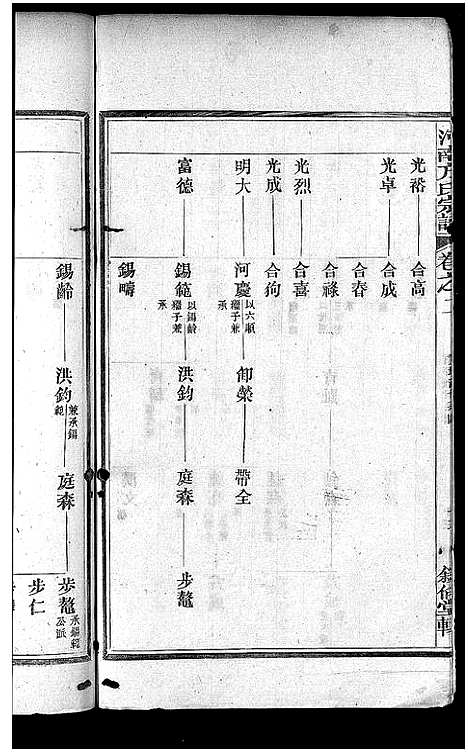 河南方氏宗譜
卷之二
敘倫堂輯
光裕 合高
光卓 合成
合春
合祿
光烈 合喜
光成 合狗
明大 河慶 以六順繼子兼承 御榮 帶全
富德 錫範 以錫齡繼子兼承 洪鈞 庭森 步鼇
錫疇
錫齡 洪鈞 兼承錫範 庭森 步鼇 承錫範公派
步仁